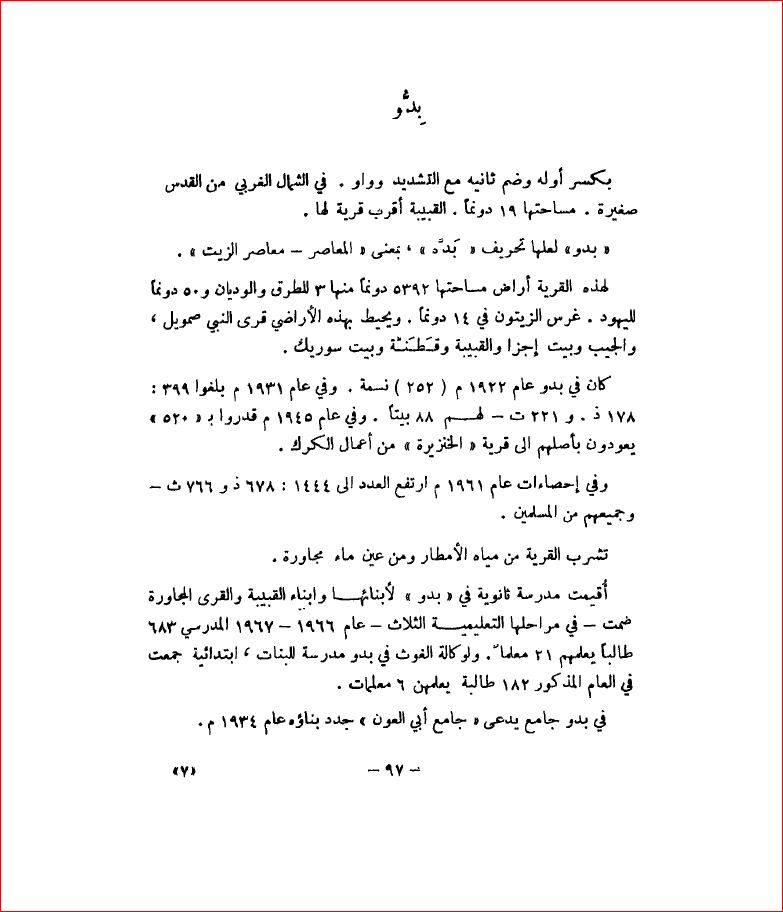 بِدُّو
بكسر أوله وضم ثانيه مع التشديد وواو . في الشمال الغربي من القدس
صغيرة . مساحتها ١٩ دونماً . القبيبة أقرب قرية لها .
« بدو» لعلها تحريف « بَدَّه » ، بمعنى « المعاصر – معاصر الزيت » .
لهذه القرية أراض مساحتها ٥٣٩٢ دونماً منها ٣ للطرق والوديان و٥٠ دونماً
لليهود . غرس الزيتون في ١٤ دونماً . ويحيط بهذه الأراضي قرى النبي صمويل ،
والجيب وبيت إجزا والقبيبة وقَطَنَّة وبيت سوريك .
كان في بدو عام ١٩٢٢ م ( ٢٥٢ ) نسمة . وفي عام ١٩٣١ م بلغوا ٣٩٩ :
١٧٨ ذ . و ٢٢١ ت – لهم ٨٨ بيتاً . وفي عام ١٩٤٥ م قدروا بـ « ٥٢٠ »
يعودون بأصلهم الى قرية « الخنزيرة » من أعمال الكرك .
وفي إحصاءات عام ١٩٦١ م ارتفع العدد الى ١٤٤٤ : ٦٧٨ ذ و ٧٦٦ ث –
وجميعهم من المسلمين .
تشرب القرية من مياه الأمطار ومن عين ماء مجاورة .
أقيمت مدرسة ثانوية في « بدو » لأبنائها وابناء القبيبة والقرى المجاورة
ضمت – في مراحلها التعليمية الثلاث – عام ١٩٦٦ – ١٩٦٧ المدرسي ٦٨٣
طالباً يعلمهم ٢١ معلماً . ولوكالة الغوث في بدو مدرسة للبنات ، ابتدائية جمعت
في العام المذكور ١٨٢ طالبة يعلمهن ٦ معلمات .
في بدو جامع يدعى « جامع أبي العون » جدد بناؤه عام ١٩٣٤ م .
– ٩٧ –
«٧»